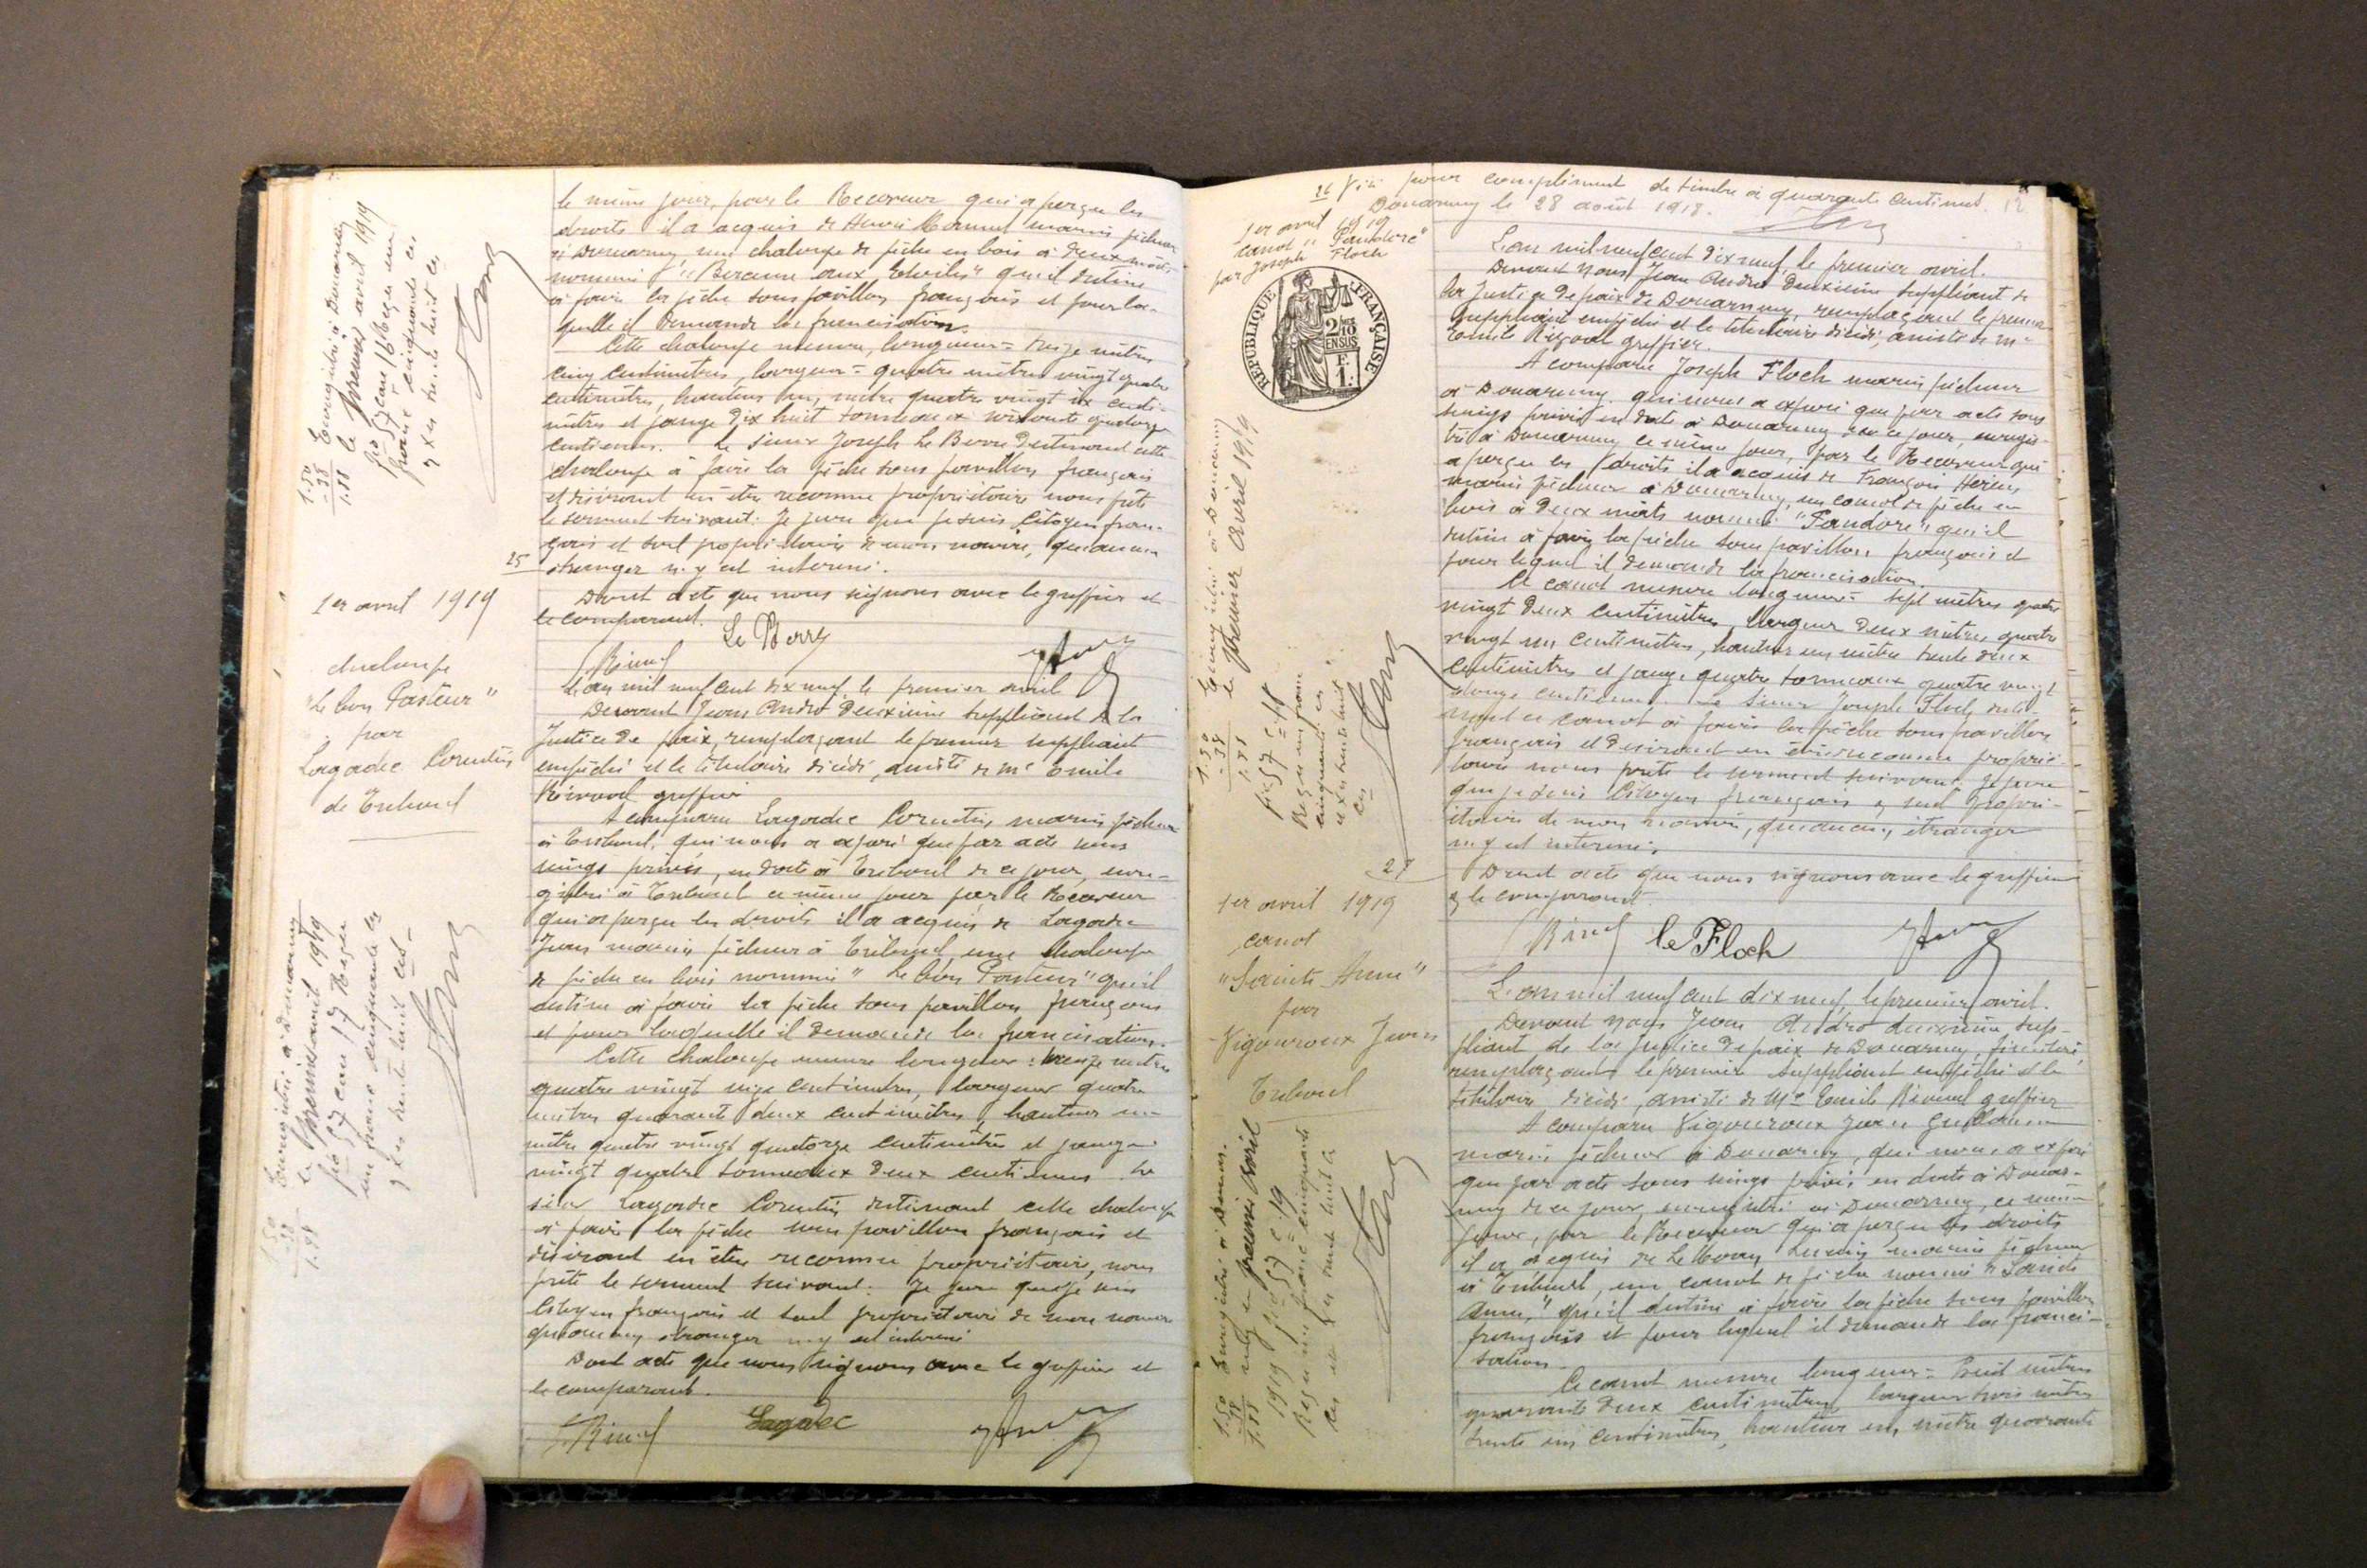 le même jour, par le Receveur qui a perçu les
droits il a acquis de Henri marin pêcheur
à Douarnenez, une chaloupe de pêche en bois à deux mâts
nommé "Berceau aux Etoiles" qu'il destine
à faire la pêche sous pavillon français et pour la-
quelle il demande la francisation.
Cette chaloupe mesure, longueur = treize mètres
cinq centimètres, largeur = quatre mètres vingt quatre
centimètres, hauteur un mètre quatre vingt centi-
mètres et jauge dix huit tonneaux soixante quatorze
centièmes. Le sieur Joseph Le Berre destinant cette
chaloupe à faire la pêche sous pavillon français
et désirant en être reconnu propriétaire nous prête
le serment suivant: Je jure que je suis Citoyen fran-
çais et seul propriétaire de mon navire, qu'aucun
étranger n'y est intéressé.
Dont acte que nous signons avec le greffier et
le comparant.
Le Berre
25
1er avril 1919
chaloupe
"Le bon Pasteur"
par
Lagadec Corentin
de Tréboul
L'an mil neuf cent dix neuf, le premier avril
Devant Jean Andro deuxième suppléant de la
Justice de paix, remplaçant le premier suppléant
empêché et le titulaire décédé, assisté de Me Emile
greffier
A comparu Lagadec Corentin, marin pêcheur
à Tréboul, qui nous a exposé que par acte sous
seings privés, en date à Tréboul de ce jour, enre-
gistré à Tréboul ce même jour par le Receveur
qui a perçu les droits il a acquis de Lagadec
Jean marin pêcheur à Tréboul, une chaloupe
de pêche en bois nommée "Le bon Pasteur" qu'il
destine à faire la pêche sous pavillon français
et pour laquelle il demande la francisation.
Cette chaloupe mesure longueur = mètres
quatre vingt centimètres, largeur quatre
mètres quarante deux centimètres, hauteur un
mètre quatre vingt quatorze centimètres et jauge
vingt quatre tonneaux deux centièmes. Le
sieur Lagadec Corentin destinant cette chaloupe
à faire la pêche sous pavillon français et
désirant en être reconnu propriétaire, nous
prête le serment suivant: Je jure que je suis
Citoyen français et seul propriétaire de mon navire
qu'aucun étranger n'y est intéressé
Dont acte que nous signons avec le greffier et
le comparant.
Lagadec
Enregistré à Douarnenez
le premier avril 1919
un franc cinquante ces
1.50
-38
1.88
Enregistré à Douarnenez
le premier avril 1919
fo 57 case 17 Reçu
un franc cinquante ces
1.50
-38
1.88
26
Visé pour complément de timbre à quarante centimes. 12
Douarnenez le 28 août 1918.
1er avril 1919
canot "Pandore"
par Joseph Floch
REPUBLIQUE FRANÇAISE
2/10
EN SUS
1 F.
L'an mil neuf cent dix neuf, le premier avril.
Devant Nous Jean Andro deuxième suppléant de
la Justice de paix de Douarnenez, remplaçant le premier
suppléant empêché et le titulaire décédé, assisté de Me
Emile greffier.
A comparu Joseph Floch marin pêcheur
à Douarnenez qui nous a exposé que par acte sous
seings privés en date à Douarnenez de ce jour, enregis-
tré à Douarnenez ce même jour, par le Receveur qui
a perçu les droits il a acquis de François
marin pêcheur à Douarnenez, un canot de pêche en
bois à deux mâts nommé "Pandore" qu'il
destine à faire la pêche sous pavillon français et
pour lequel il demande la francisation.
Ce canot mesure longueur = sept mètres quatre
vingt deux centimètres, largeur deux mètres quatre
vingt un centimètres, hauteur un mètre trente deux
centimètres et jauge quatre tonneaux quatre vingt
centièmes. Le sieur Joseph Floch desti-
nant ce canot à faire la pêche sous pavillon
français et désirant en être reconnu proprié-
taire nous prête le serment suivant, je jure
que je suis Citoyen français et seul propri-
étaire de mon navire, qu'aucun étranger
n'y est intéressé.
Dont acte que nous signons avec le greffier
et le comparant.
le Floch
Enregistré à Douarnenez
le premier avril 1919
fo 57 c 18
Reçu un franc
cinquante ces
1.50
-38
1.88
27
1er avril 1919
canot
"Sainte Anne"
par
Vigouroux Jean
Tréboul
L'an mil neuf cent dix neuf, le premier avril.
Devant Nous Jean Andro deuxième sup-
pléant de la Justice de paix de Douarnenez, Finistère,
remplaçant le premier suppléant empêché et le
titulaire décédé, assisté de Me Emile greffier
A comparu Vigouroux Jean Guillaume
marin pêcheur à Douarnenez, qui nous a exposé
que par acte sous seings privés en date à Douar-
nenez de ce jour, enregistré à Douarnenez, ce même
jour, par le Receveur qui a perçu les droits
il a acquis de marin pêcheur
à Tréboul, un canot de pêche nommé "Sainte
Anne," qu'il destine à faire la pêche sous pavillon
français et pour lequel il demande la franci-
sation.
Ce canot mesure longueur = huit mètres
quarante deux centimètres, largeur trois mètres
trente un centimètres, hauteur un mètre quarante
premier avril
1919 fo 57 c 19
Reçu un franc cinquante
1.50
-38
1.88